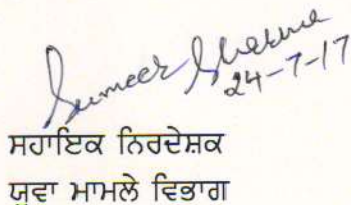 Sumeer Sharma
24-7-17
ਸਹਾਇਕ ਨਿਰਦੇਸ਼ਕ
ਯੁਵਾ ਮਾਮਲੇ ਵਿਭਾਗ